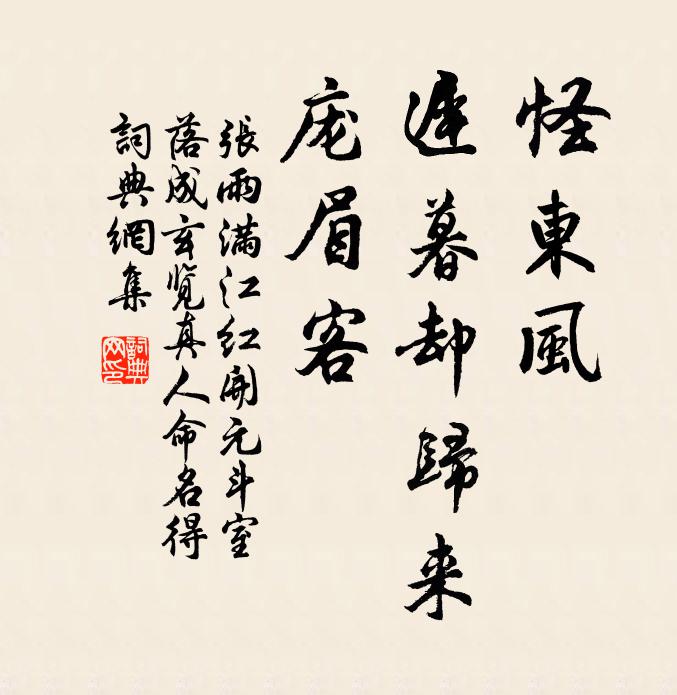 怪東風
遲暮却歸来
庞眉客
張雨满江红開元斗室
落成玄覽真人命名得
詞典網集
詞典网印